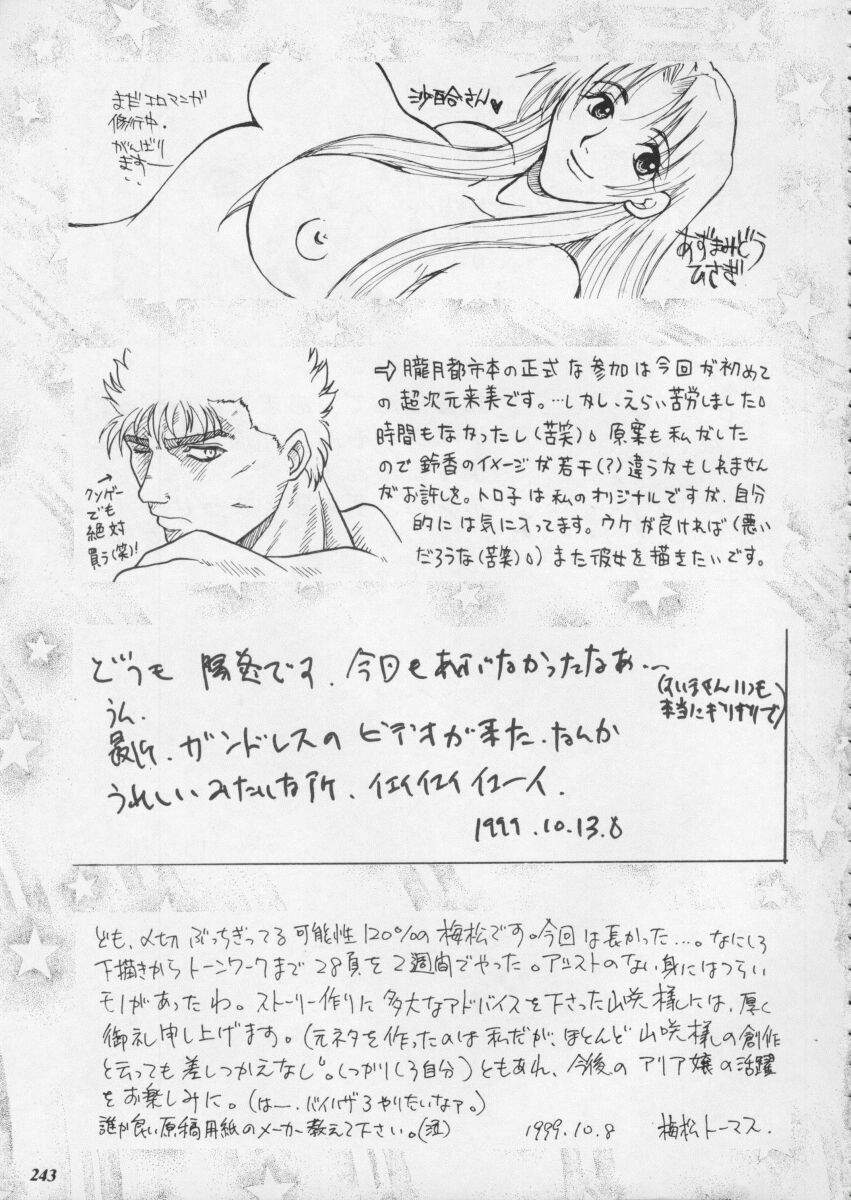 まだエロマンガ
修行中.
がんばり
ますー
沙百合さん♥
あずまみどう
ひさぎ
⇨朧月都市本の正式な参加は今回が初めて
の超次元来美です。…しかし、えらい苦労しました。
時間もなかったし(苦笑)。原案も私がした
ので鈴香のイメージが若干(?)違うかもしれません
がお許しを。トロ子は私のオリジナルですが、自分
的には気に入ってます。ウケが良ければ(悪い
だろうな(苦笑)。)また彼女を描きたいです。
→
クソゲー
でも
絶対
買う(笑)!
どうも 陽炎です. 今回もあぶなかったなあ…
(すいませんいつも
本当にギリギリで)
うん.
最近. ガンドレスのビデオが来た. なんか
うれしいみたいな所. イエイイエイイエーイ.
1999.10.13.8
ども、〆切ぶっちぎってる可能性120%の梅松です。今回は長かった…。なにしろ
下描きからトーンワークまで28頁を2週間でやった。アシストのない身にはつらい
モノがあったわ。ストーリー作りに多大なアドバイスを下さった山咲様には、厚く
御礼申し上げます。(元ネタを作ったのは私だが、ほとんど山咲様の創作
と云っても差しつかえなし。しっかりしろ自分)ともあれ、今後のアリア嬢の活躍
をお楽しみに。(はー.バイオハザ3やりたいなァ。)
誰か良い原稿用紙のメーカー教えて下さい。(泣) 1999.10.8 梅松トーマス.
243